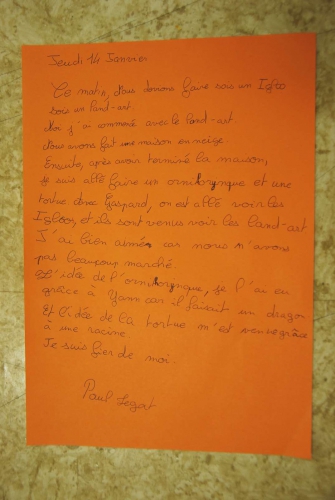 Jeudi 14 Janvier
Ce matin, Nous devons faire sois un Igloo
sois un land-art.
Moi j'ai commencé avec le land-art
Nous avons fait une maison en neige
Ensuite, après avoir terminé la maison,
je suis allé faire un ornithorynque et une
tortue avec Gaspard, on est allé voir les
Igloos, et ils sont venus voir les land-art
J'ai bien aimé car nous n'avons
pas beaucoup marché.
L'idée de l'ornithorynque, je l'ai eu
grâce à Yann car il faisait un dragon
Et l'idée de la tortue m'est venue grâce
à une racine
Je suis fier de moi.
Paul